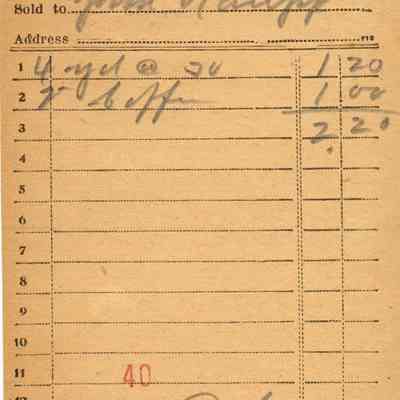 Sold to John
Address
1 4 yd @ 30 1 20
2 1 00
3 2 20
4
5
6
7
8
9
10
11 40
12